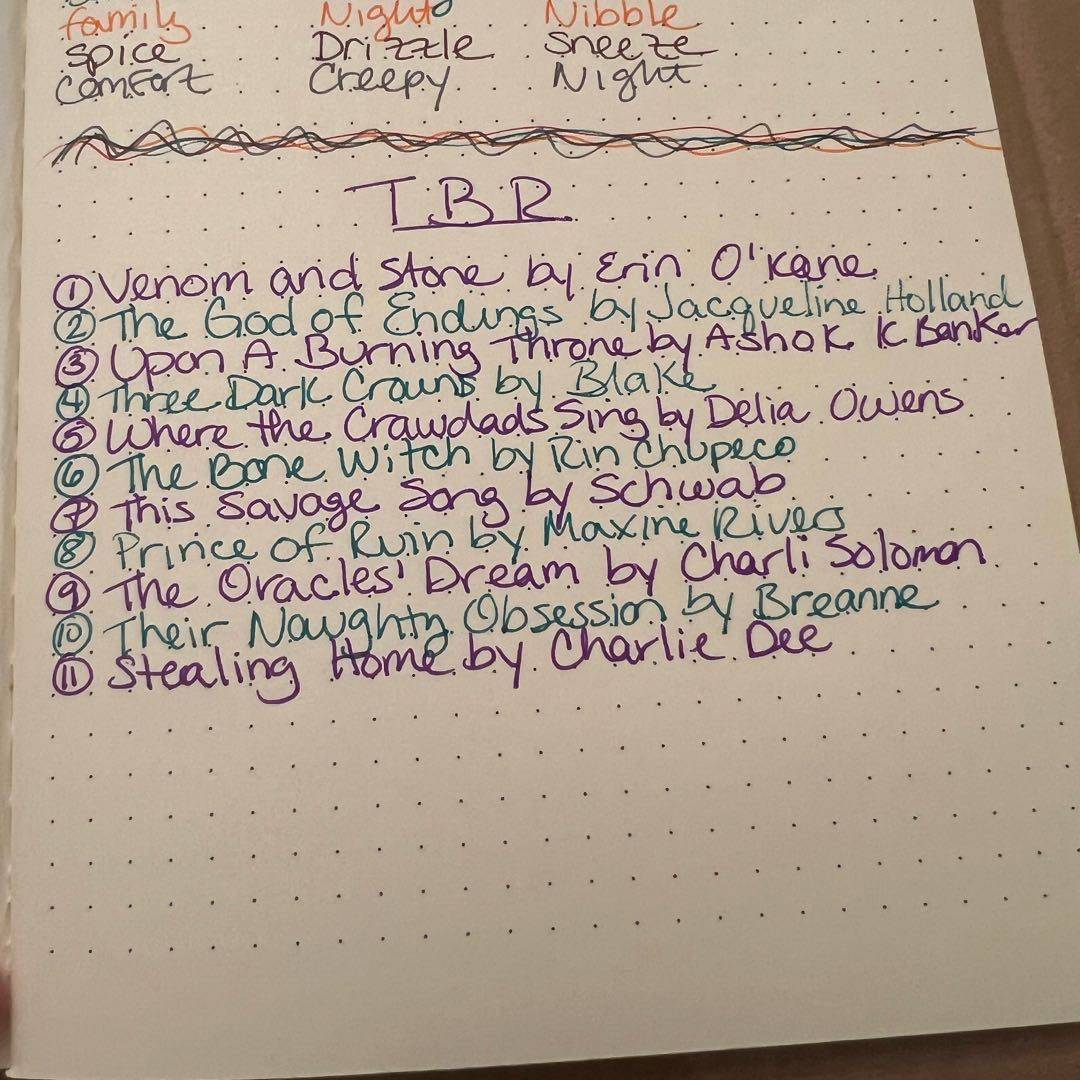 family Night Nibble
Spice Drizzle Sneeze
Comfort Creepy Night
T.B.R.
① Venom and Stone by Erin O'Kane
② The God of Endings by Jacqueline Holland
③ Upon A Burning Throne by Ashok K Banker
④ Three Dark Crowns by Blake
⑤ Where the Crawdads Sing by Delia Owens
⑥ The Bone Witch by Rin Chupeco
⑦ This Savage Song by Schwab
⑧ Prince of Ruin by Maxine Rivers
⑨ The Oracles' Dream by Charli Solomon
⑩ Their Nawghty Obsession by Breanne
⑪ Stealing Home by Charlie Dee